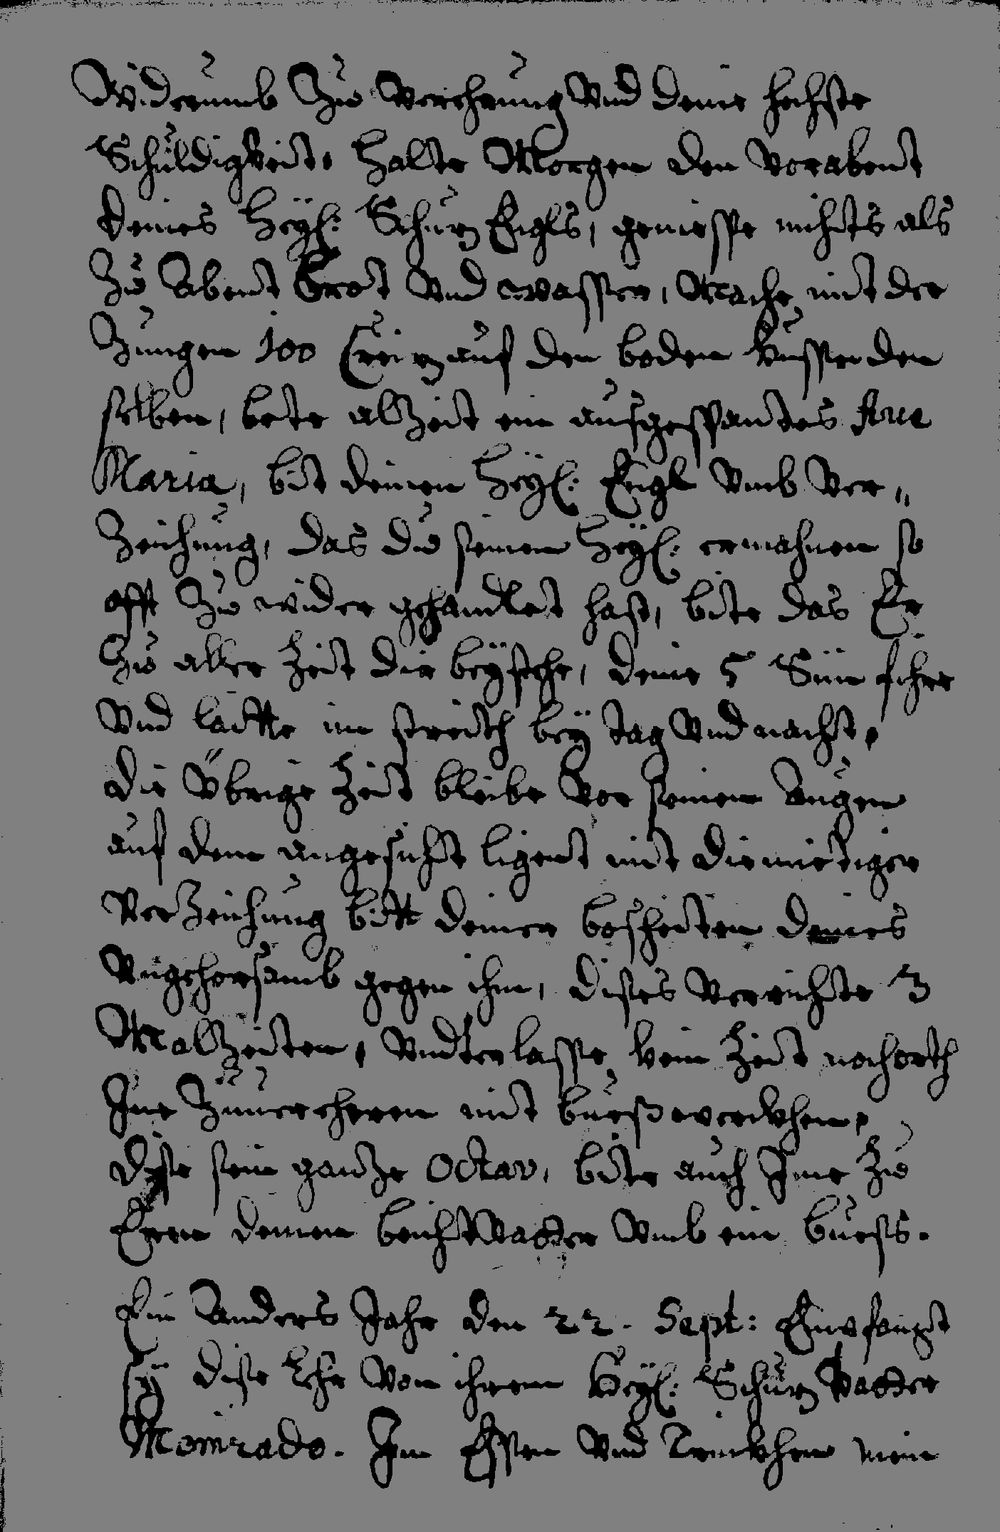 Widerumb Zuo Verehrung Vnd deine hechste
Schuldigkeit. Halte Morgen den Vorabent
deines Heÿl: Schuz Engls, geniesse nichts als
Zuo Abent brot Vnd wasser, Mache mit der
Zungen 100 Creiz auf den boden kussend den
selben, bete alzeit ein aufgespantes Aue
Maria, bit deinen Heÿl: Engl Vmb Ver„
Zeichung, das du seinem Heÿl: ermahnen so
offt Zuo wider gehandlet hast, bite das Er
Zuo aller Zeit dir beÿstehe, deine 5 Sün fihre
Vnd laitte im streith beÿ tag Vnd nacht.
die Vbrige Zeit bleibe Vor seinen Augen
auf dem angesicht ligent mit diemietiger
VerZeichung bitt deiner bosheiten deines
Vngehorsamb gegen ihm, dises Verrichte 3
Malzeiten, Vndterlasse kein Zeit noch orth
Ime Zuuerehren mit buesswerckhen,
dise sein ganze Octav, bite auch Ime Zuo
Eren deinen beichtVatter Vmb ein buess.
Ein Anders Jahr den 22. Sept: Empfangt
sÿ dise Lehr Von ihrem Heÿl: Schuz Vatter
Meinrado. Im Essen Vnd Trinckhen mein